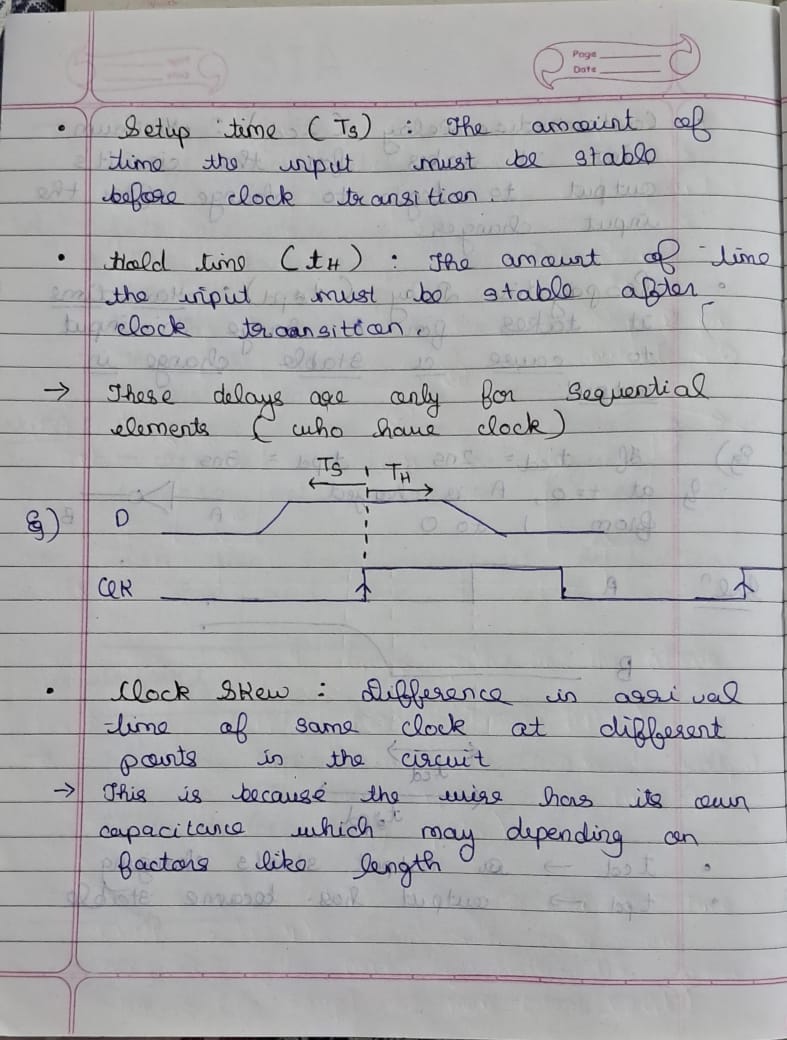 Page
Date
• Setup time (Ts) : The amount of
time the input must be stable
before clock transition.
• Hold time (tH) : The amount of time
the input must be stable after
clock transition.
→ These delays are only for sequential
elements (who have clock)
Ts TH
Eg) D
ClK
• Clock Skew : Difference in arrival
time of same clock at different
points in the circuit
→ This is because the wire has its own
capacitance which may depending on
factors like length